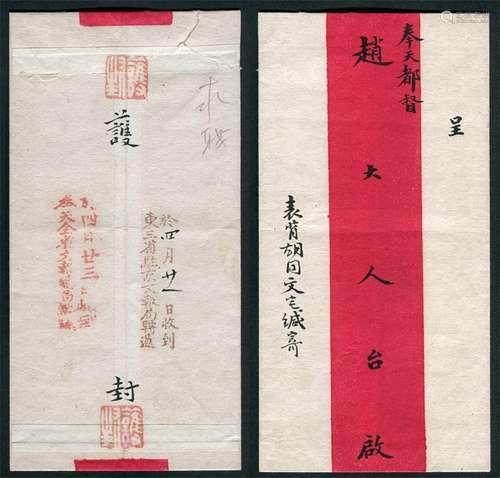 護封
護
封
護封
於四月廿一日收到
東三省駐京文報局轉遞
四月廿三
呈
奉天都督
趙大人台啟
表背胡同文宅緘寄